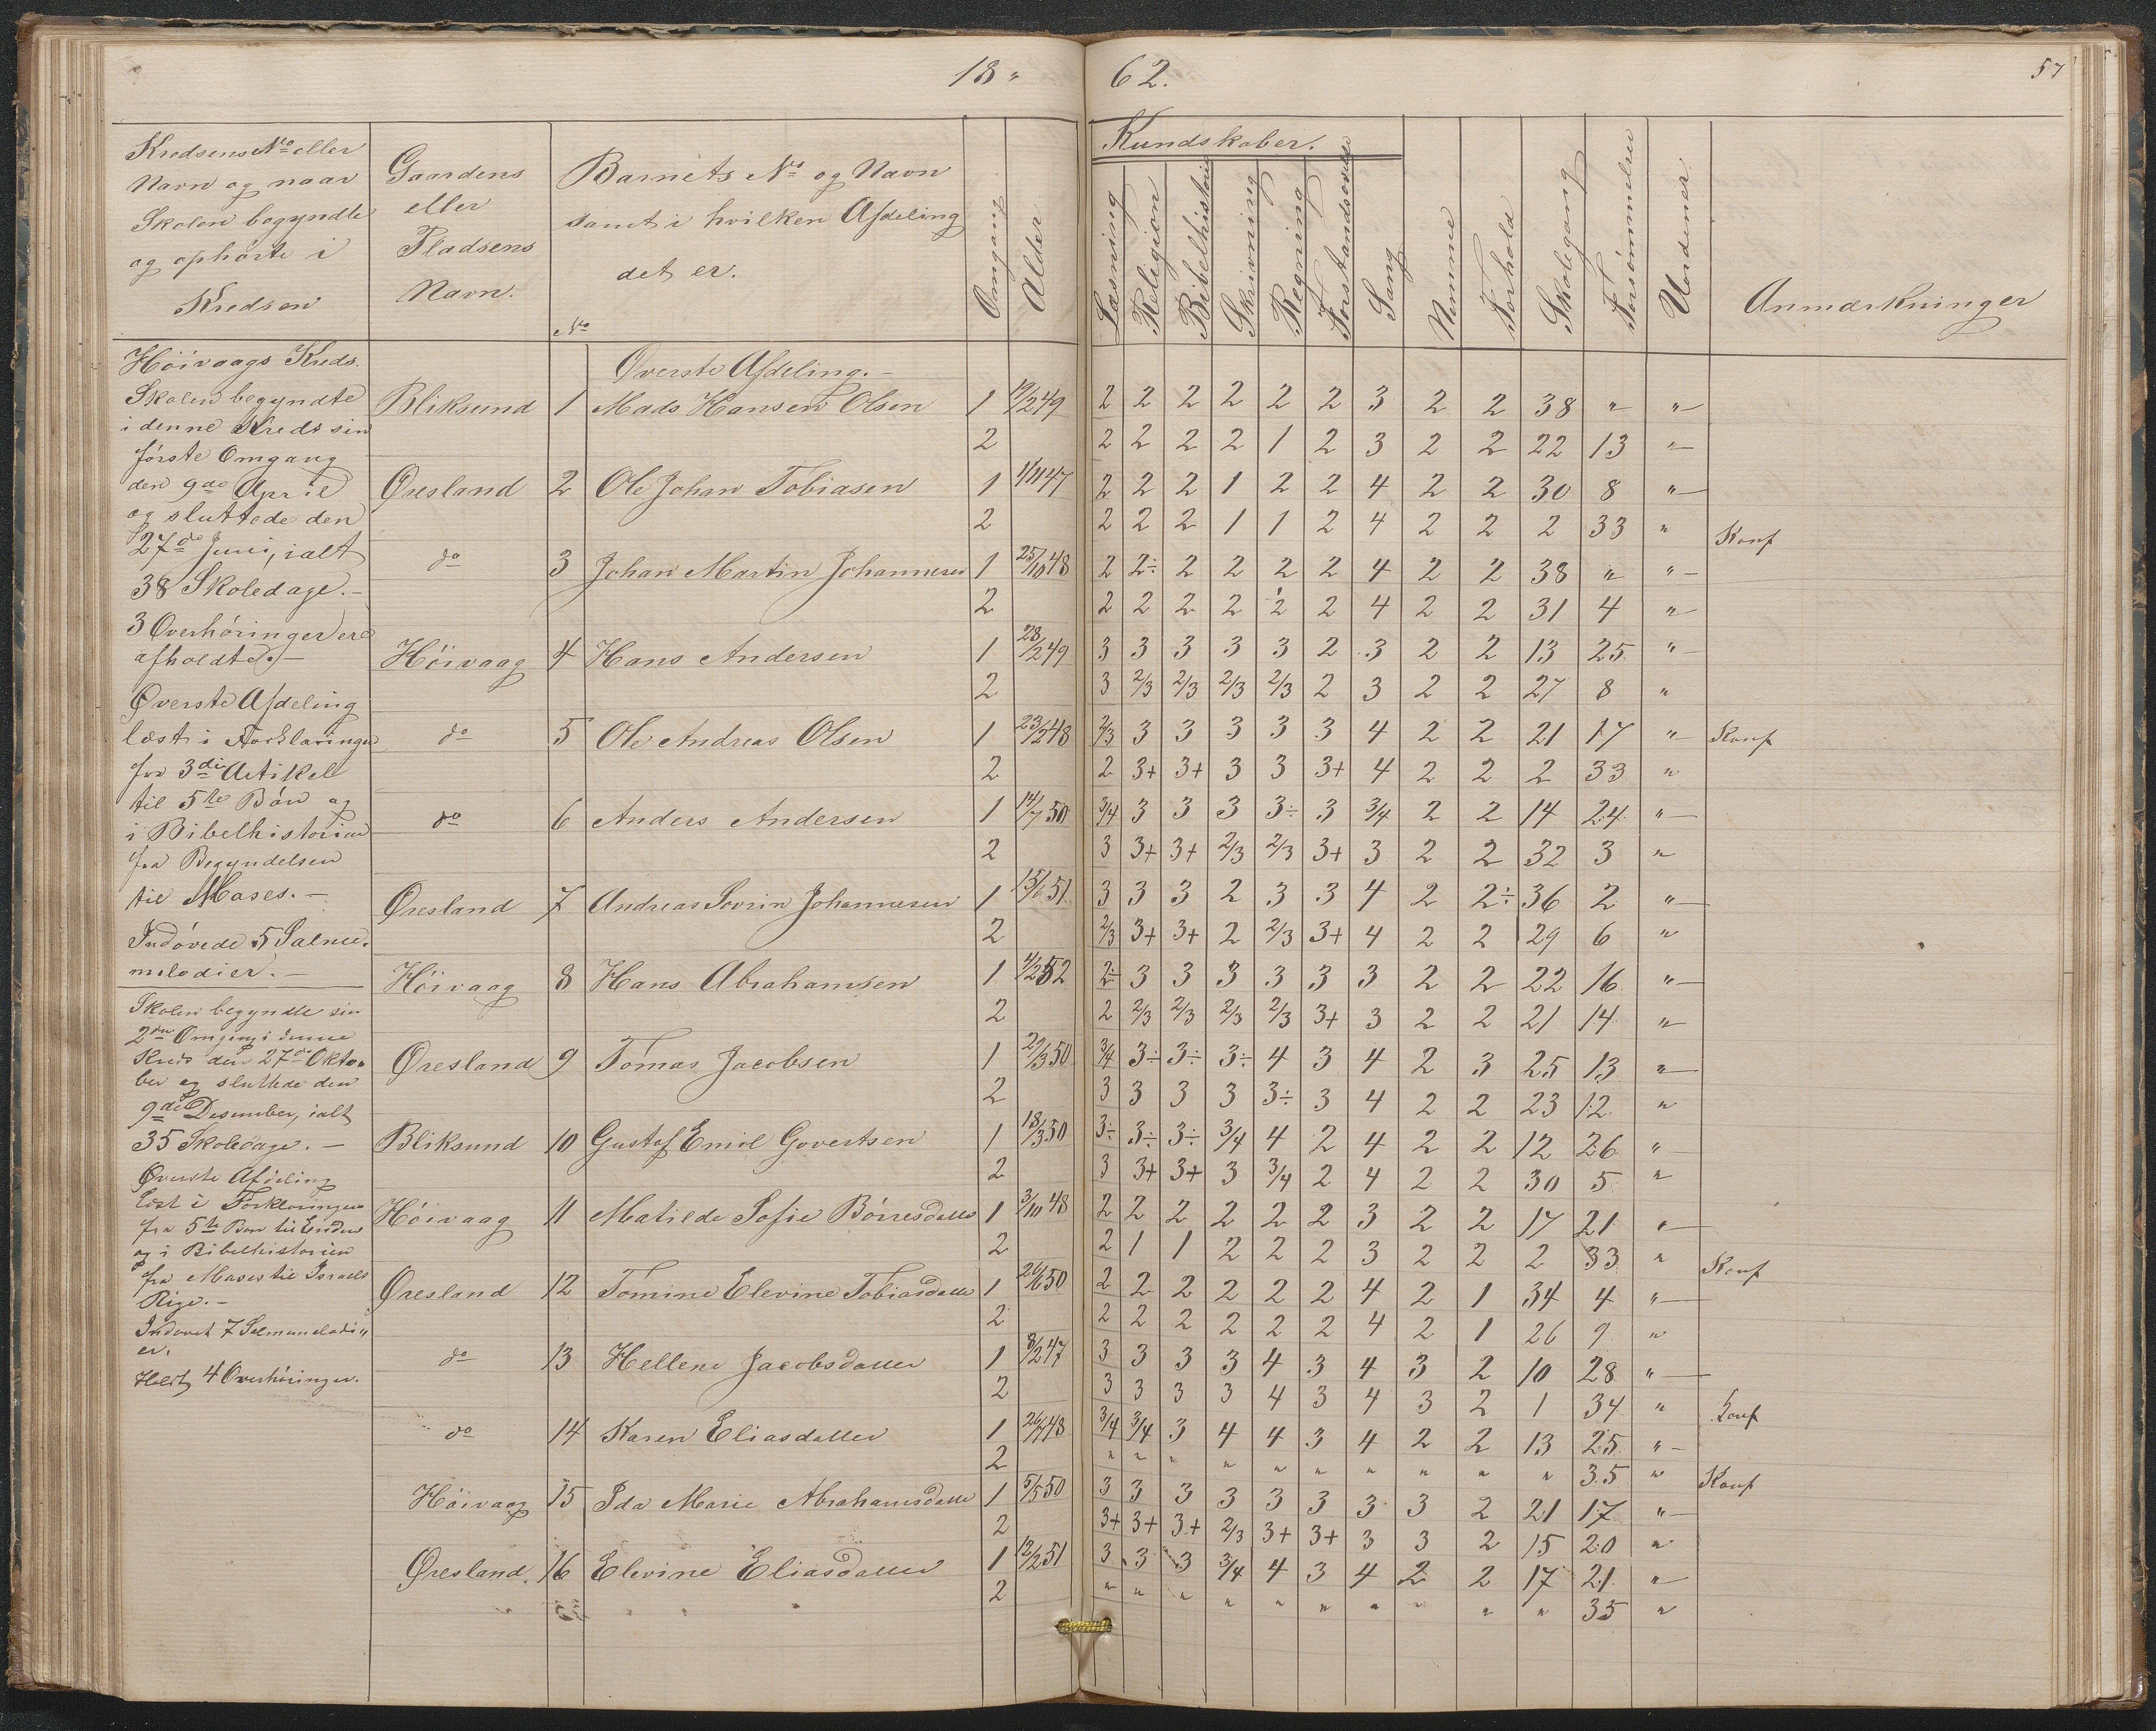 18 " 62.
57
Kredsens No eller Navn og naar Skolen begyndte og ophørte i Kredsen
Gaardens eller Pladsens Navn.
Barnets No og Navn samt i hvilken Afdeling det er.
No
Omgang
Alder
Kundskaber.
Læsning
Religion
Bibelhistorie
Skrivning
Regning
Forstandsøvelse
Sang
Nemme
Forhold
Skolegang
Forsømmelser
Uordener
Anmærkninger
Höivaags Kreds.
Skolen begyndte
i denne Kreds sin
förste Omgang
den 9de April
og sluttede den
27de Juni, ialt
38 Skoledage. -
3 Overhöringer ere
afholdte. -
Øverste Afdeling
læst i Forklaringen
fra 3die Artikel
til 5te Bön og
i Bibelhistorien
fra Begyndelsen
til Moses. -
Indövede 5 Salme-
melodier. -
Skolen begyndte sin
2den Omgang i denne
Kreds den 27de Okto-
ber og sluttede den
9de Desember, ialt
35 Skoledage. -
Øverste Afdeling
læst i Forklaringen
fra 5te Bøn til Enden
og i Bibelhistorien
fra Moses til Israels
Rige. -
Indøvet 7 Salmemelodi"
er.
Holdt 4 Overhöringer.
Øverste Afdeling. -
Bliksund 1 Mads Hansen Olsen 1 19/2 49 2 2 2 2 2 2 3 2 2 38 " "
2 2 2 2 2 1 2 3 2 2 22 13 "
Øresland 2 Ole Johan Tobiasen 1 1/11 47 2 2 2 1 2 2 4 2 2 30 8 "
2 2 2 2 1 1 2 4 2 2 2 33 " Konf
do 3 Johan Martin Johannesen 1 25/10 48 2 2÷ 2 2 2 2 4 2 2 38 " "
2 2 2 2 2 2 2 4 2 2 31 4 "
Höivaag 4 Hans Andersen 1 28/2 49 3 3 3 3 3 2 3 2 2 13 25 "
2 3 2/3 2/3 2/3 2/3 2 3 2 2 27 8 "
do 5 Ole Andreas Olsen 1 23/2 48 2/3 3 3 3 3 3 4 2 2 21 17 " Konf
2 2 3+ 3+ 3 3 3+ 4 2 2 2 33 "
do 6 Anders Andersen 1 14/7 50 3/4 3 3 3 3÷ 3 3/4 2 2 14 24 "
2 3 3+ 3+ 2/3 2/3 3+ 3 2 2 32 3 "
Øresland 7 Andreas Sovrin Johannesen 1 15/6 51 3 3 3 2 3 3 4 2 2÷ 36 2 "
2 2/3 3+ 3+ 2 2/3 3+ 4 2 2 29 6 "
Höivaag 8 Hans Abrahamsen 1 4/2 52 2÷ 3 3 3 3 3 3 2 2 22 16 "
2 2 2/3 2/3 2/3 2/3 3+ 3 2 2 21 14 "
Øresland 9 Tomas Jacobsen 1 29/3 50 3/4 3÷ 3÷ 3÷ 4 3 4 2 3 25 13 "
2 3 3 3 3 3÷ 3 4 2 2 23 12 "
Bliksund 10 Gustaf Emil Govertsen 1 18/3 50 3÷ 3÷ 3÷ 3/4 4 2 4 2 2 12 26 "
2 3 3+ 3+ 3 3/4 2 4 2 2 30 5 "
Höivaag 11 Matilde Sofie Börresdatter 1 3/10 48 2 2 2 2 2 2 3 2 2 17 21 "
2 2 1 1 2 2 2 3 2 2 2 33 " Konf
Øresland 12 Tomine Elevine Tobiasdatter 1 26/6 50 2 2 2 2 2 2 4 2 1 34 4 "
2 2 2 2 2 2 2 4 2 1 26 9 "
do 13 Hellene Jacobsdatter 1 8/2 47 3 3 3 3 4 3 4 3 2 10 28 "
2 3 3 3 3 4 3 4 3 2 1 34 " Konf
do 14 Karen Eliasdatter 1 48 3/4 3/4 3 4 4 3 4 2 2 13 25 "
2 " " " " " " " " " " 35 " Konf
Höivaag 15 Ida Marie Abrahamsdatter 1 5/5 50 3 3 3 3 3 3 3 3 2 21 17 "
2 3+ 3+ 3+ 2/3 3+ 3+ 3 3 2 15 20 "
Øresland. 16 Elevine Eliasdatter 1 12/2 51 3 3 3 3/4 4 3 4 2 2 17 21 "
2 " " " " " " " " " " 35 "